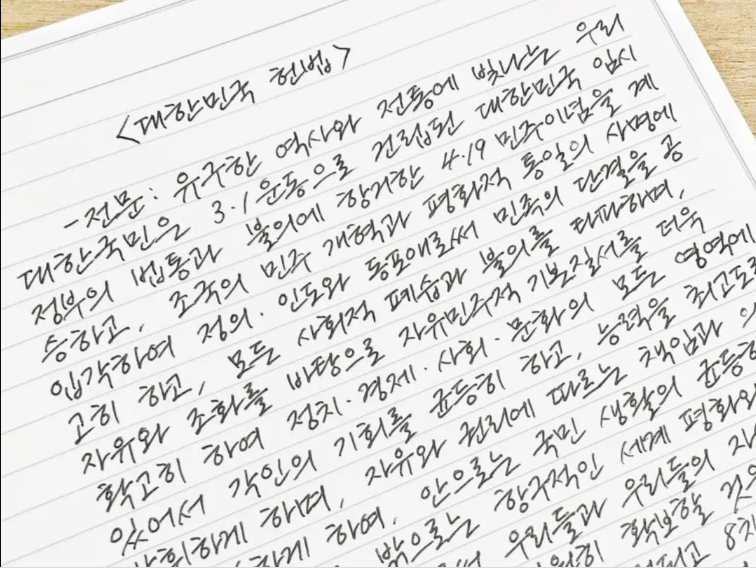 <대한민국 헌법>
-전문: 유구한 역사와 전통에 빛나는 우리
대한국민은 3.1운동으로 건립된 대한민국 임시
정부의 법통과 불의에 항거한 4.19 민주이념을 계
승하고, 조국의 민주 개혁과 평화적 통일의 사명에
입각하여 정의·인도와 동포애로써 민족의 단결을 공
고히 하고, 모든 사회적 폐습과 불의를 타파하며,
자유와 조화를 바탕으로 자유민주적 기본질서를 더욱
확고히 하여 정치·경제·사회·문화의 모든 영역에
있어서 각인의 기회를 균등히 하고, 능력을 최고도로
발휘하게 하며, 자유와 권리에 따르는 책임과 의
하게 하여, 안으로는 국민 생활의 균등한
밖으로는 항구적인 세계 평화와
우리들과 우리들의 자
확보할 것을
8차